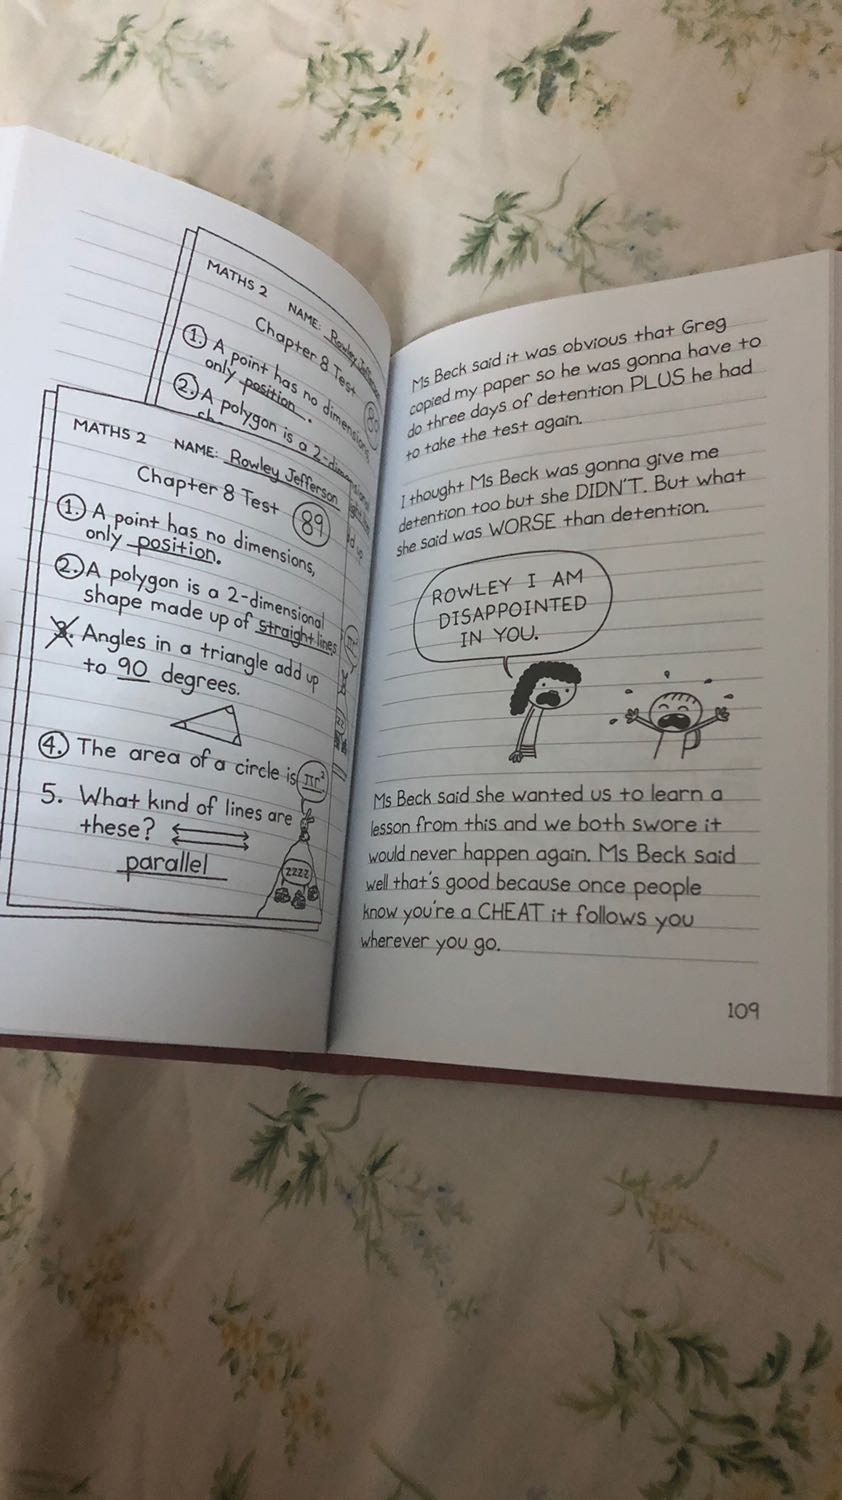 MATHS 2 NAME: Rowley Jefferson
Chapter 8 Test
1. A point has no dimensions,
only position.
2. A polygon is a 2-dimensional
MATHS 2 NAME: Rowley Jefferson
Chapter 8 Test 89
1. A point has no dimensions,
only position.
2. A polygon is a 2-dimensional
shape made up of straight lines
3. Angles in a triangle add up
to 90 degrees.
4. The area of a circle is πr²
5. What kind of lines are
these?
parallel
zzzz
Ms Beck said it was obvious that Greg
copied my paper so he was gonna have to
do three days of detention PLUS he had
to take the test again.
I thought Ms Beck was gonna give me
detention too but she DIDN'T. But what
she said was WORSE than detention.
ROWLEY I AM
DISAPPOINTED
IN YOU.
Ms Beck said she wanted us to learn a
lesson from this and we both swore it
would never happen again. Ms Beck said
well that's good because once people
know you're a CHEAT it follows you
wherever you go.
109